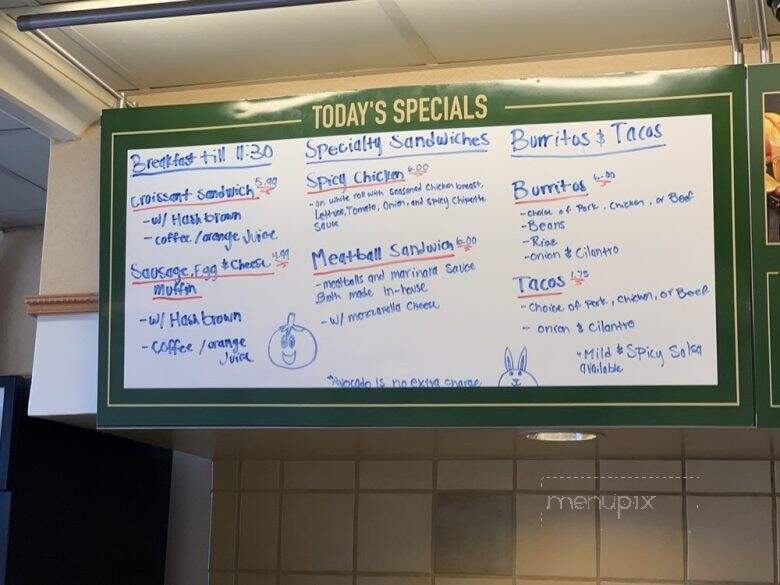 TODAY'S SPECIALS
Breakfast till 11:30
Croissant Sandwich 5.99
-w/ Hashbrown
-coffee/orange Juice
Sausage, Egg & Cheese 4.99
Muffin
-w/ Hashbrown
-coffee/orange
Juice
Specialty Sandwiches
Spicy Chicken 6.00
-on white roll with seasoned chicken breast,
Lettuce, Tomato, Onion, and Spicy Chipotle
Sauce
Meatball Sandwich 6.00
-meatballs and marinara sauce
Both made in-house
-w/ mozzarella cheese
*Avocado is no extra charge
Burritos & Tacos
Burritos
-choice of Pork, Chicken, or Beef
-Beans
-Rice
-onion & Cilantro
Tacos 1.75
-Choice of Pork, Chicken, or Beef
- onion & cilantro
*Mild & Spicy Salsa
available
menupix